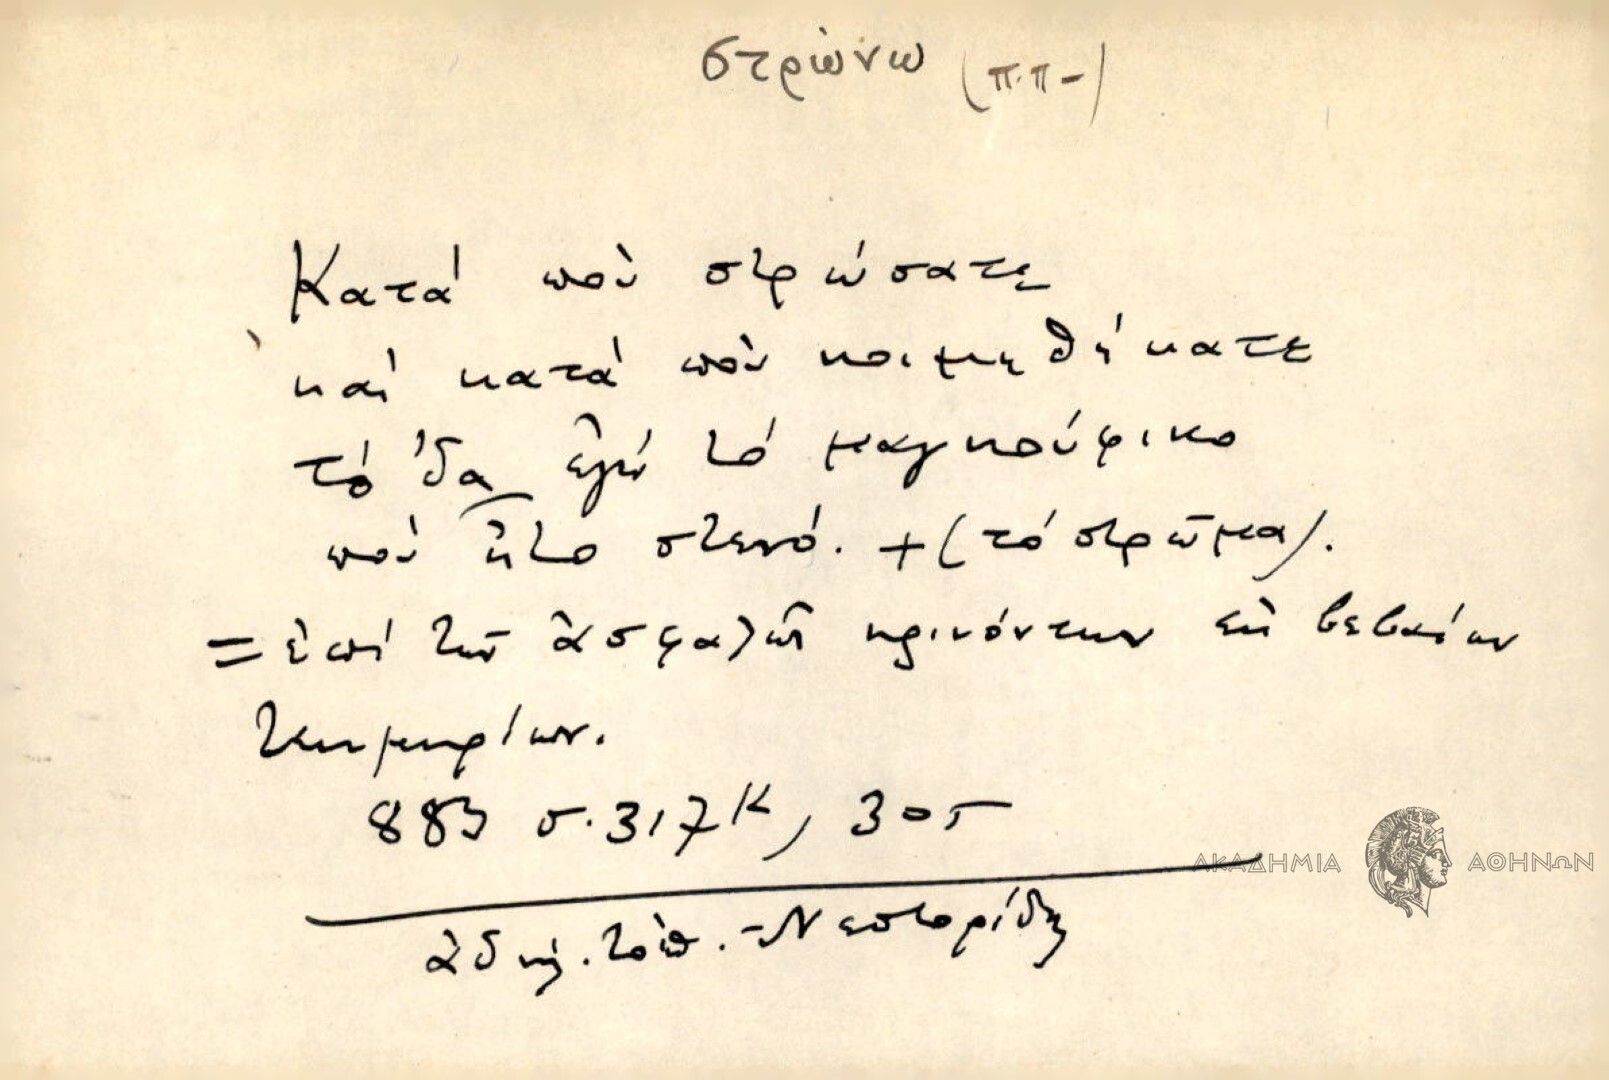 στρώνω (π.π-)
Κατά ποὺ στρώσατε
καὶ κατά ποὺ κοιμηθήκατε
τό 'δα ἐγώ τό μαγκούφικο
ποὺ ἦτο στενό. + (τό στρῶμα).
= ἐπί τῶν ἀσφαλῶς κρινόντων ἐκ βεβαίων
τεκμηρίων.
883 σ. 317κ, 305
ἀδήλ. τόπ. - Νεστορίδης
ΑΚΑΔΗΜΙΑ ΑΘΗΝΩΝ